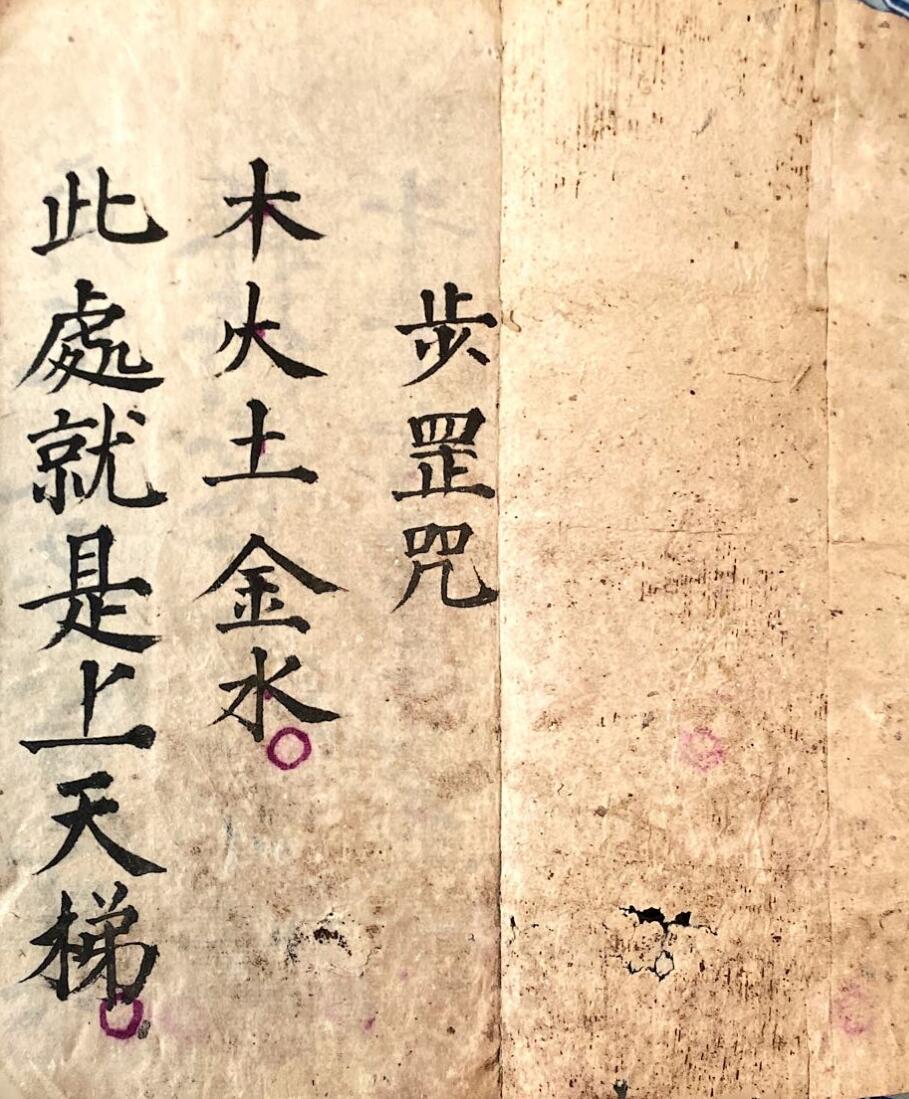 步罡咒
木火土金水
此處就是上天梯